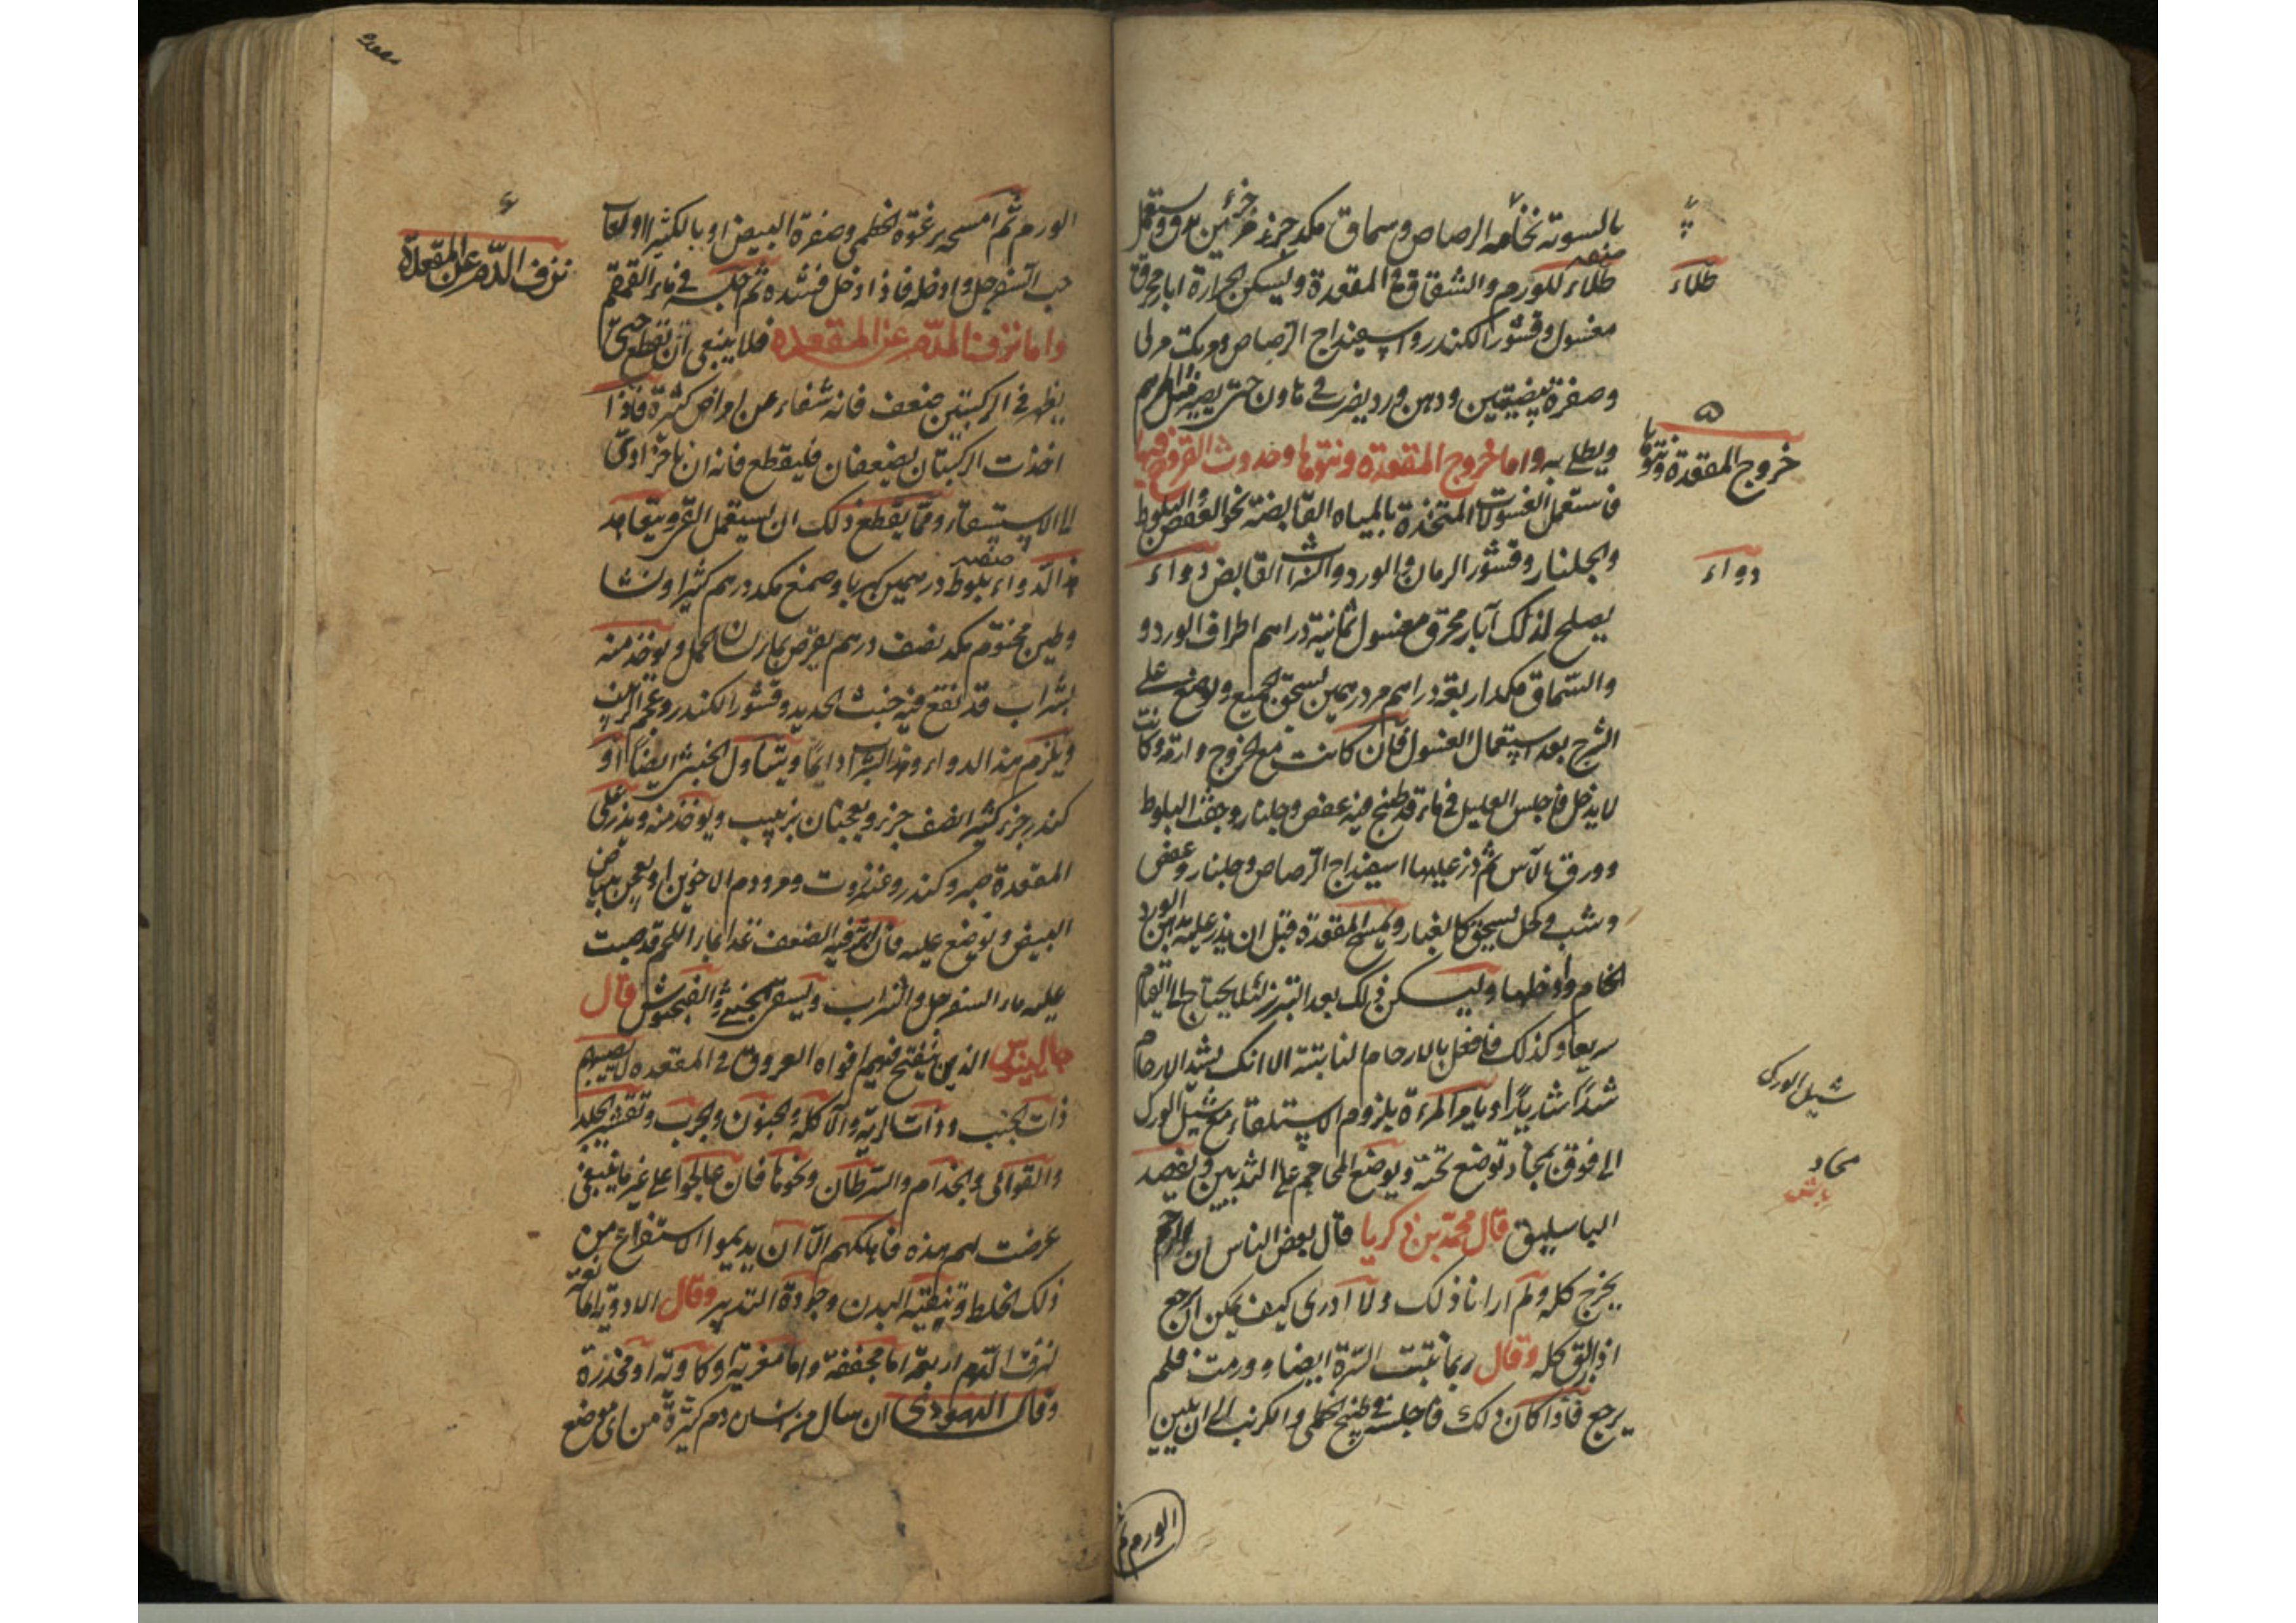 بالسوية نخامه الرصاص وسماق مكد جزء مر جزئين يدق ويستعمل
طلاء
طلاء للورم والشقاق في المقعدة ويسكن الحرارة ابار محرق
مغسول وقشور الكندر واسپيذاج الرصاص
وصفرة بيضتين ودهن ورد يضرب في هاون حتى يصير مثل المرهم
خروج المقعدة ونتوها
ويطلى به واما خروج المقعدة ونتوها وحدوث القروح فيها
فاستعمل الغسولات المتخذة بالمياه القابضة نحو العفص والبلوط
دواء
والجلنار وقشور الرمان والورد والشراب القابض دواء
يصلح لذلك آبار محرق مغسول ثمانية دراهم اطراف الورد و
والسماق مكد اربعة دراهم مر درهمين يسحق الجميع ويوضع على
الشرج بعد استعمال الغسول فان كانت مع الخروج وارمة وكانت
لا يدخل فاجلس العليل في ماء قد طبخ فيه عفص وجلنار وجفت البلوط
وورق الآس ثم ذر عليها اسفيذاج الرصاص وجلنار وعفص
وشب وكحل يسحق كالغبار ويمسح المقعدة قبل ان يذر عليه بدهن الورد
الخام وادخلها وليكن ذلك بعد التبرز لئلا يحتاج الى القيام
سريعا وكذلك فافعل بالارحام الناتئة الا انك تشد الارحام
شيل الورك
شدا شديدا ويأمر المرءة بلزوم الاستلقاء مع شيل الورك
مخاد
الى فوق بمخاد توضع تحته ويوضع المحاجم على الثديين ويفصد
الباسليق قال محمد بن زكريا قال بعض الناس ان الرحم
يخرج كله ولم ار انا ذلك ولا ادرى كيف يمكن ان يرجع
اذا انزلق كله وقال ربما نتئت السرة ايضا وورمت فلم
يرجع فاذا كان ذلك فاجلسه في طبيخ الخطمى والكرنب الى ان يلين
الورم ثم
الورم ثم امسحه برغوة الخطمى وصفرة البيض او بالكثيرا او لعاب
نزف الدم عن المقعدة
حب السفرجل وادخله فاذا دخل فشده ثم اجلسه في ماء القمقم
واما نزف الدم عن المقعده فلا ينبغى ان تقطع حتى
يظهر في الركبتين ضعف فانه شفاء عن امراض كثيرة فاذا
اخذت الركبتان يضعفان فليقطع فانه ان تأخر ادى
الى الاستسقاء ومما يقطع ذلك ان يستعمل القئ ويتعاهد
هذا الدواء بلوط درهمين كهربا وصمغ مكد درهم كثيرا ونشا
وطين مختوم مكد نصف درهم يقرص بماء لسان الحمل ويوخذ منه
بشراب قد نقع فيه خبث الحديد وقشور الكندر وعجم الزبيب
ويلزم هذا الدواء وهذا الشراب دايما ويتناول الخبث ايضا او
كندر جزء كثيرا نصف جزء ويعجنان بزبيب ويوخذ منه ويذر على
المقعدة صبر وكندر وعنزروت ومر ودم الاخوين او يعجن ببياض
البيض ويوضع عليه فان اثر فيه الضعف غذا بماء اللحم قد صبت
عليه ماء السفرجل والشراب ويسقى الخبث والفنجنوش قال
جالينوس الذين ينفتح فيهم افواه العروق في المقعده لا يصيبهم
ذات الجنب وذات الرية والآكلة والجنون والجرب وتقشير الجلد
والقوابى والجذام والسرطان ونحوها فان عالجوا على غير ما ينبغى
عرضت لهم هذه فاهلكهم الا ان يديموا الاستفراغ من
ذلك الخلط وتنقية البدن وجودة التدبير وقال الادوية القاطعة
لنزف الدم اربعة اما مجففة واما مغرية او كاوية او مخدرة
وقال اليهودى ان سال من انسان دم كثيرة من اى موضع